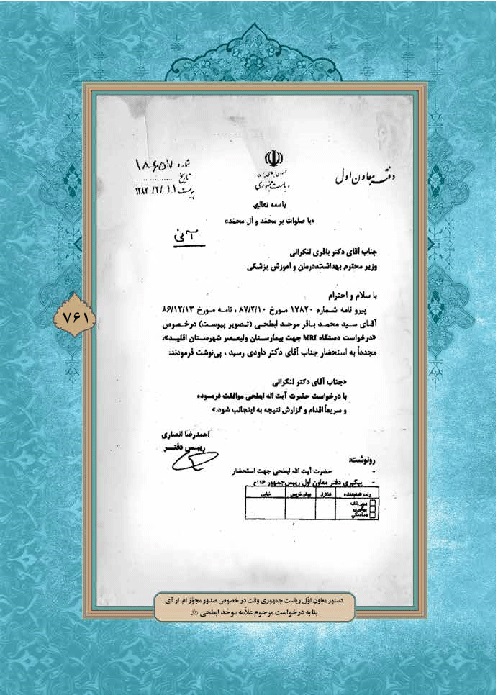 دفتر معاون اول
ریاست جمهوری
شماره ۱۸۶۵۷
تاریخ
پیوست
باسمه تعالی
«با صلوات بر محمد و آل محمد»
جناب آقای دکتر باقری لنکرانی
وزیر محترم بهداشت،درمان و آموزش پزشکی
با سلام و احترام
پیرو نامه شماره ۱۷۸۲۰ مورخ ۸۷/۲/۱۰ ، نامه مورخ ۸۶/۱۲/۱۳
آقای سید محمد باقر موحد ابطحی (تصویر پیوست) درخصوص
«درخواست دستگاه MRI جهت بیمارستان ولیعصر شهرستان اقلید»،
مجدداً به استحضار جناب آقای دکتر داودی رسید ، پی‌نوشت فرمودند:
«جناب آقای دکتر لنکرانی
با درخواست حضرت آیت اله ابطحی موافقت فرموده
و سریعاً اقدام و گزارش نتیجه به اینجانب شود.»
احمدرضا انصاری
رییس دفتر
رونوشت:
- حضرت آیت اله ابطحی جهت استحضار
- پیگیری دفتر معاون اول رییس‌جمهور
۷۶۱
دستور معاون اوّل ریاست جمهوری وقت در خصوص صدور مجوّز ام آر آی
بنا به درخواست مرحوم علامه موحد ابطحی